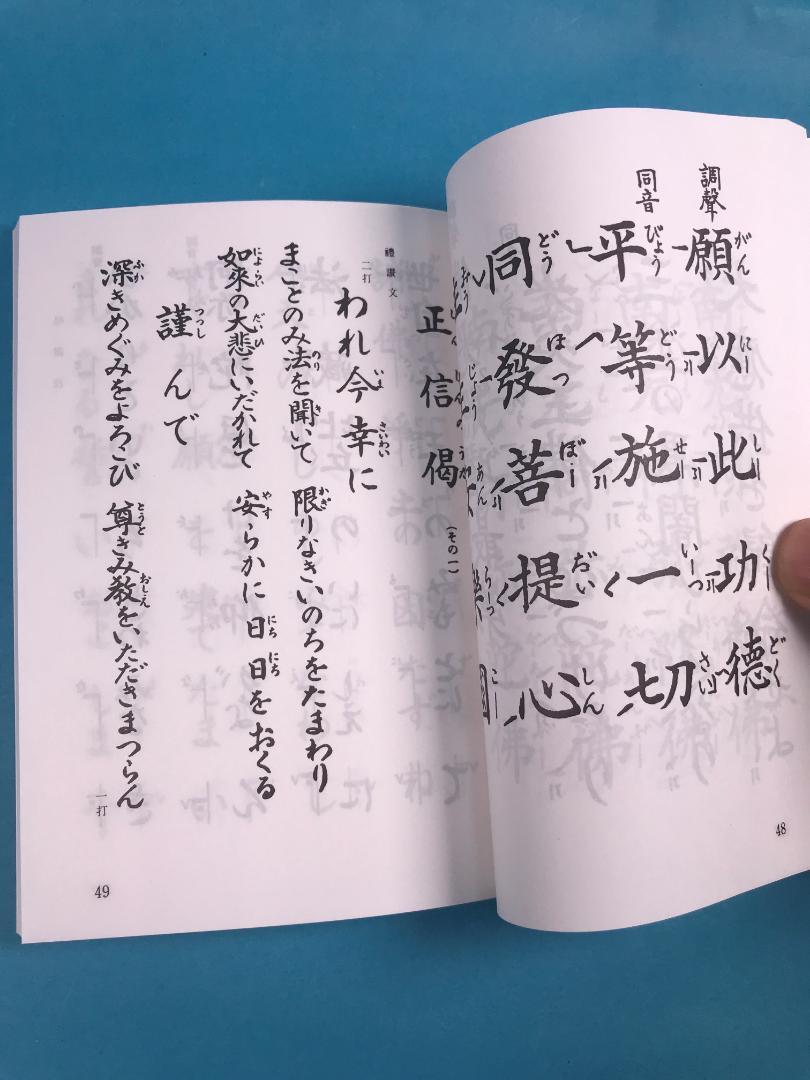 調聲
願以此功德
同音
平等施一切
同發菩提心
48
正信偈
(その一)
禮讃文
二打
われ今幸に
まことのみ法を聞いて 限りなきいのちをたまわり
如來の大悲にいだかれて 安らかに日日をおくる
謹んで
深きめぐみをよろこび 尊きみ教をいただきまつらん
一打
49